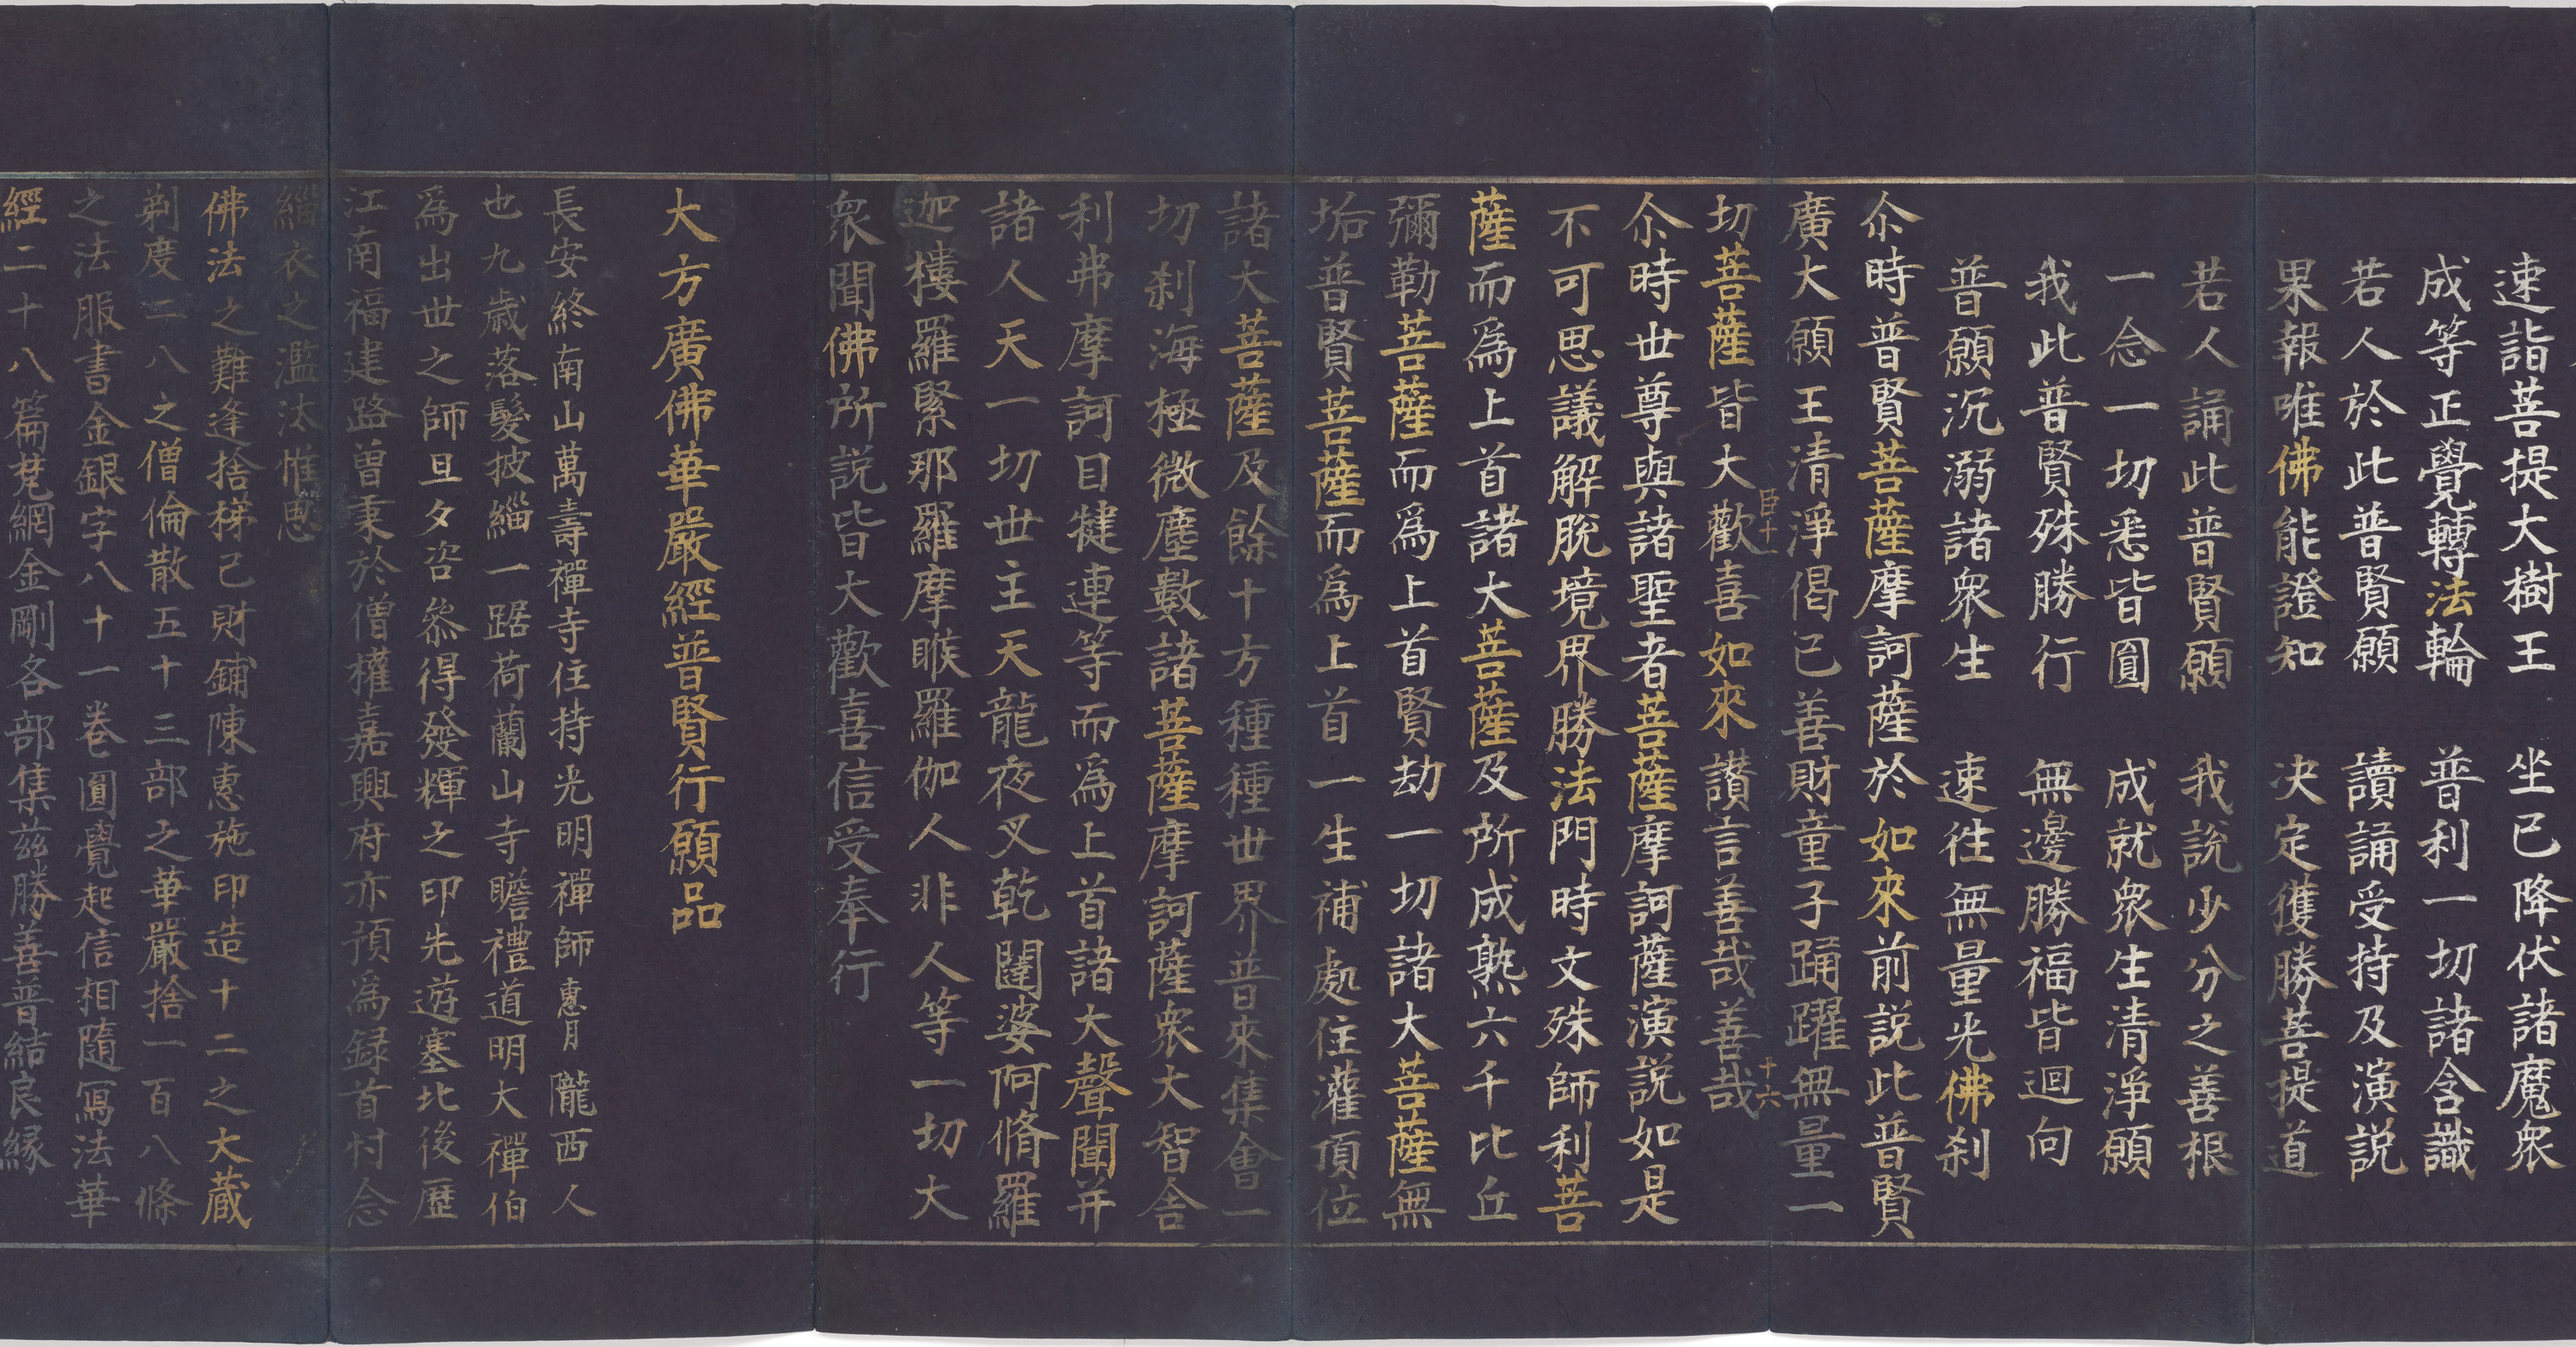 速詣菩提大樹王　坐已降伏諸魔衆
成等正覺轉法輪　普利一切諸含識
若人於此普賢願　讀誦受持及演説
果報唯佛能證知　决定獲勝菩提道
若人誦此普賢願　我説少分之善根
一念一切悉皆圓　成就衆生清淨願
我此普賢殊勝行　無邊勝福皆迴向
普願沉溺諸衆生　速往無量光佛刹
尒時普賢菩薩摩訶薩於如來前説此普賢
廣大願王清淨偈已善財童子踊躍無量一
臣十一
十六
切菩薩皆大歡喜如來讃言善哉善哉
尒時世尊與諸聖者菩薩摩訶薩演説如是
不可思議解脱境界勝法門時文殊師利菩
薩而爲上首諸大菩薩及所成熟六千比丘
彌勒菩薩而爲上首賢劫一切諸大菩薩無
垢普賢菩薩而爲上首一生補處住灌頂位
諸大菩薩及餘十方種種世界普來集會一
切刹海極微塵數諸菩薩摩訶薩衆大智舍
利弗摩訶目犍連等而爲上首諸大聲聞并
諸人天一切世主天龍夜叉乾闥婆阿脩羅
迦樓羅緊那羅摩睺羅伽人非人等一切大
衆聞佛所説皆大歡喜信受奉行
大方廣佛華嚴經普賢行願品
長安終南山萬壽禪寺住持光明禪師惠月隴西人
也九歳落髮披緇一踞荷蘭山寺瞻禮道明大禪伯
爲出世之師旦夕咨叅得發輝之印先遊塞北後歴
江南福建路曽秉於僧權嘉興府亦預爲録首忖念
緇衣之濫汰惟思
佛法之難逢捨梯己財鋪陳惠施印造十二之大蔵
剃度二八之僧倫散五十三部之華嚴捨一百八條
之法服書金銀字八十一卷圓覺起信相隨冩法華
經二十八篇梵網金剛各部集兹勝善普結良縁